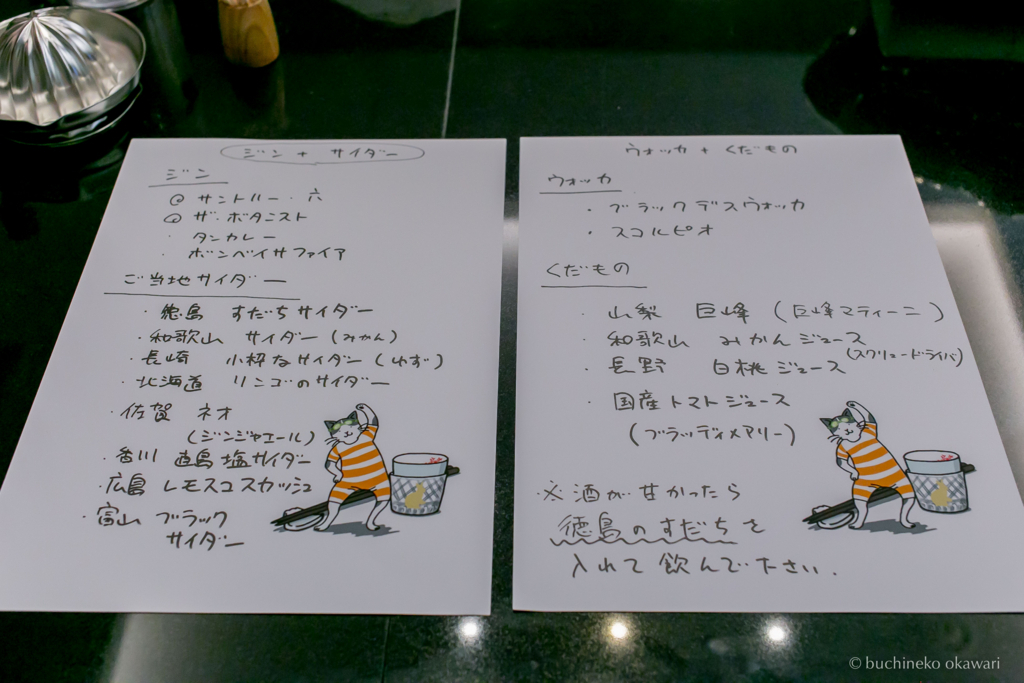 ジン + サイダー
ジン
◎ サントリー・六
◎ ザ・ボタニスト
・ タンカレー
・ ボンベイサファイア
ご当地サイダー
・ 徳島 すだちサイダー
・ 和歌山 サイダー (みかん)
・ 長崎 小粋なサイダー (ゆず)
・ 北海道 リンゴのサイダー
・ 佐賀 ネオ
(ジンジャエール)
・ 香川 直島塩サイダー
・ 広島 レモスコスカッシュ
・ 富山 ブラック
サイダー
ウォッカ + くだもの
ウォッカ
・ ブラックデスウォッカ
・ スコルピオ
くだもの
・ 山梨 巨峰 (巨峰マティーニ)
・ 和歌山 みかんジュース
(スクリュードライバ)
・ 長野 白桃ジュース
・ 国産トマトジュース
(ブラッディメアリー)
・※ 酒が甘かったら
徳島のすだちを
入れて飲んで下さい.
© buchineko okawari